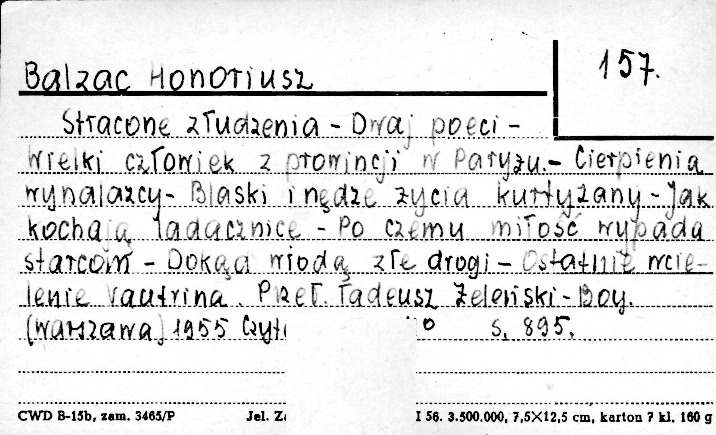 157.
Balzac Honoriusz
Stracone złudzenia - Dwaj poeci -
Wielki człowiek z prowincji w Paryżu. - Cierpienia
wynalazcy - Blaski i nędze życia kurtyzany - Jak
kochają ladacznice - Po czemu miłość wypada
starcom - Dokąd wiodą złe drogi - Ostatnie wcie-
lenie Vautrina. Przeł. Tadeusz Żeleński - Boy.
(Warszawa) 1955 s. 895.
CWD B-15b, zam. 3465/P Jel. I 56. 3.500.000, 7,5×12,5 cm, karton 7 kl. 160 g